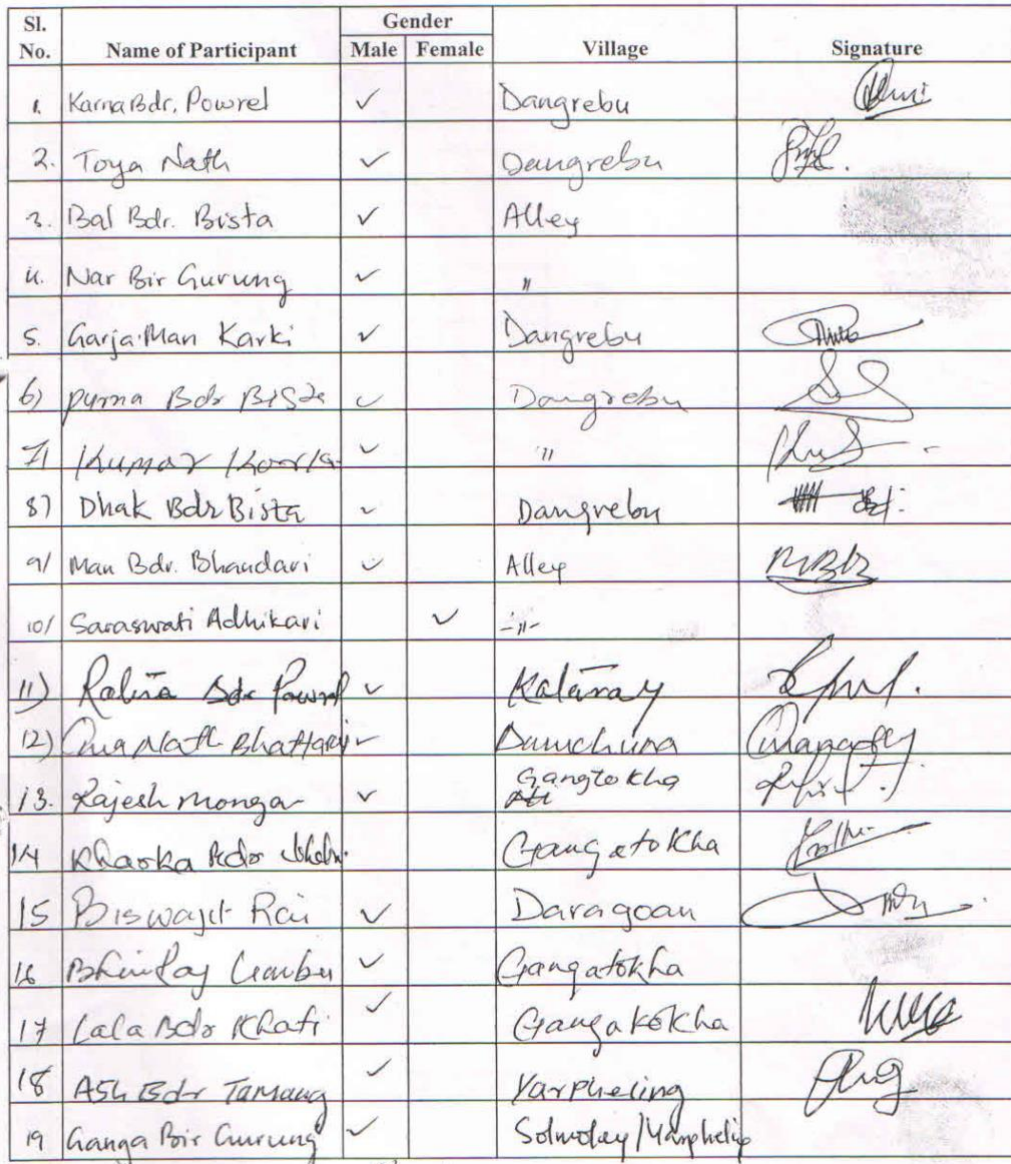 Sl. No. Name of Participant Gender Male Female Village Signature
1. Karna Bdr. Powrel ✓ Dangrebu
2. Toya Nath ✓ Dangrebu
3. Bal Bdr. Bista ✓ Alley
4. Nar Bir Gurung ✓ "
5. Garja Man Karki ✓ Dangrebu
6) Purna Bdr Bista ✓ Dangrebu
7) Kumar ✓ "
8) Dhak Bdr Bista ✓ Dangrebu
9/ Man Bdr. Bhandari ✓ Alley MBB
10/ Saraswati Adhikari ✓ -"-
11) Bdr Powrel ✓
12) Nath Bhattarai ✓
13. Rajesh Mongar ✓ Gangtokha
14 Kharka Bdr Gangatokha
15 Biswajit Rai ✓ Daragoan
16 ✓ Gangatokha
17 Lala Bdr Khati ✓ Gangakokha
18 Ash Bdr Tamang ✓ Yarpheling
19 Ganga Bir Gurung ✓